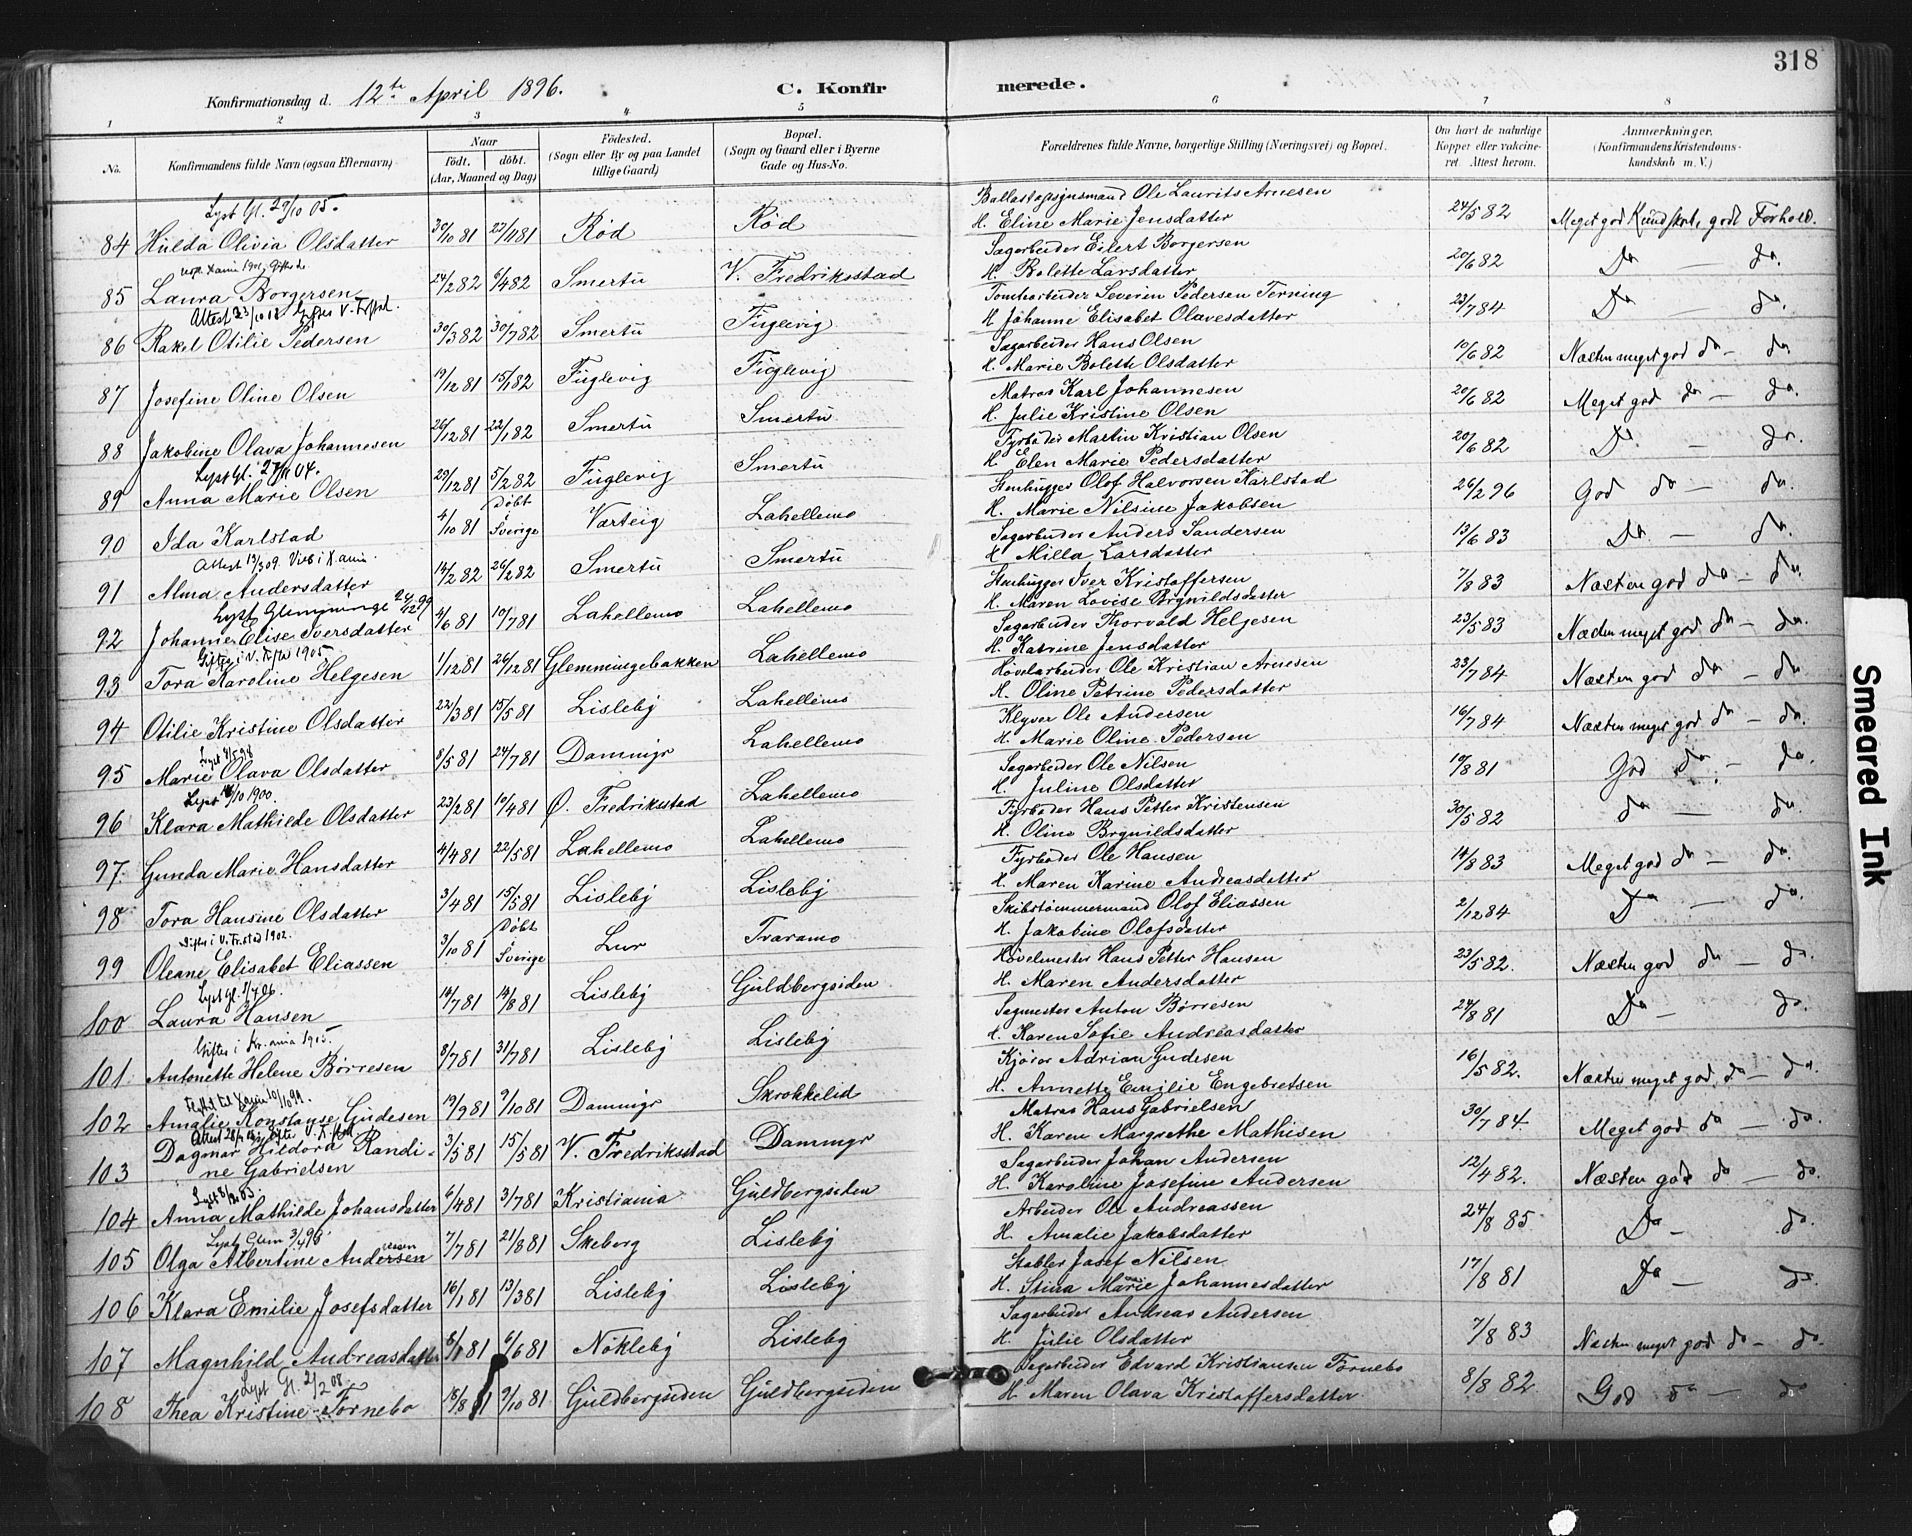 318
Konfirmationsdag d. 12te April 1896. C. Konfir merede.
1 2 3 4 5 6 7 8
No. Konfirmandens fulde Navn (ogsaa Efternavn) Naar født. døbt. (Aar, Maaned og Dag) Fødested. (Sogn eller By og paa Landet tillige Gaard) Bopæl. (Sogn og Gaard eller i Byerne Gade og Hus-No. Forældrenes fulde Navne, borgerlige Stilling (Næringsvei) og Bopæl. Om havt de naturlige Kopper eller vaccineret. Attest herom. Anmærkninger. (Konfirmandens Kristendomskundskab m. V.)
Lyst Gl. 29/10 05.
84 Hulda Olivia Olsdatter 30/10 81 Rød Rød Ole Laurits Arnesen H. Eline Marie Jensdatter 24/5 82 Meget god Kundskab, godt Forhold.
85 Laura Borgersen 24/2 82 9/4 82 Smertu V. Fredriksstad Sagarbeider Eilert Borgersen H. Bolette Larsdatter 20/6 82 Do — do.
86 Rakel Otilie Pedersen 30/3 82 30/7 82 Smertu Fuglevig Tomtearbeider Severin Pedersen Terning H. Johanne Elisabet Olavesdatter 23/7 84 Do — do.
87 Josefine Oline Olsen 19/12 81 15/1 82 Fuglevig Fuglevig Sagarbeider Hans Olsen H. Marie Bolette Olsdatter 10/6 82 Næsten meget god do — do.
88 Jakobine Olava Johannesen 26/12 81 22/1 82 Smertu Smertu Matros Karl Johannesen H. Julie Kristine Olsen 20/6 82 Meget god do — do.
89 Anna Marie Olsen 29/12 81 5/2 82 Fuglevig Smertu Fyrbøder Martin Kristian Olsen H. Elen Marie Pedersdatter 20/6 82 Do — do.
90 Ida Karlstad 4/10 81 Døbt i Sverige Varteig Lahellemo Stenhugger Olof Halvorsen Karlstad H. Marie Nilsine Jakobsen 26/2 96 God do — do.
Attest 13/3 09.
91 Alma Andersdatter 14/2 82 26/2 82 Smertu Smertu Sagarbeider Anders Sandersen H. Milla Larsdatter 13/6 83 Do. — do.
Lyst Glemminge 24/12 99
92 Johanne Elise Iversdatter 4/6 81 10/7 81 Lahellemo Lahellemo Stenhugger Iver Kristoffersen H. Maren Lovise Brynildsdatter 7/8 83 Næsten god do — do.
93 Tora Karoline Helgesen 1/12 81 26/12 81 Glemmingebakken Lahellemo Sagarbeider Thorvald Helgesen H. Katrine Jensdatter 23/5 83 Næsten meget god do — do.
94 Otilie Kristine Olsdatter 22/3 81 15/5 81 Lisleby Lahellemo Høvlarbeider Ole Kristian Arnesen H. Oline Petrine Pedersdatter 23/7 84 Næsten god do — do.
95 Marie Olava Olsdatter 8/5 81 24/7 81 Dammyr Lahellemo Klyver Ole Andersen H. Marie Oline Pedersen 16/7 84 Næsten meget god do — do.
96 Klara Mathilde Olsdatter 23/2 81 10/4 81 Ø. Fredriksstad Lahellemo Sagarbeider Ole Nilsen H. Juline Olsdatter 19/8 81 God do — do.
97. Gunda Marie Hansdatter 4/4 81 22/5 81 Lahellemo Lahellemo Fyrbøder Hans Petter Kristensen H. Oline Brynildsdatter 30/5 82 do — do
98 Tora Hansine Olsdatter 3/4 81 15/5 81 Lisleby Lisleby Fyrbøder Ole Hansen H. Maren Karine Andreasdatter 14/8 83 Meget god do — do.
99 Oleane Elisabet Eliassen 3/10 81 Døbt i Sverige Lur Traramo Skibstømmermand Olof Eliassen H. Jakobine Olofsdatter 2/12 84 Do — do.
Lyst Gl. 1/7 06.
100 Laura Hansen 14/7 81 14/8 81 Lisleby Guldbergsiden Høvelmester Hans Petter Hansen H. Maren Andersdatter 23/5 82. Næsten god do — do.
101 Antonette Helene Børresen 8/7 81 31/7 81 Lisleby Lisleby Sagmester Anton Børresen H. Karen Sofie Andreasdatter 24/8 81 Do — do.
102 Amalie Konstanse Gudesen 19/9 81 9/10 81 Dammyr Skrokkelid Kjører Adrian Gudesen H. Annette Emilie Engebretsen 16/5 82. Næsten meget god do — do.
103 Dagmar Hildora Randine Gabrielsen 3/5 81 15/5 81 V. Fredriksstad Dammyr Matros Hans Gabrielsen H. Karen Margrethe Mathisen 30/7 84 Meget god do — do.
104 Anna Mathilde Johansdatter 6/4 81 3/7 81 Kristiania Guldbergsiden Sagarbeider Johan Andersen H. Karoline Josefine Andersen 12/4 82. Næsten god do — do.
105 Olga Albertine Andersen 7/7 81 21/8 81 Skeberg Lisleby Arbeider Ole Andreassen H. Amalie Jakobsdatter 24/8 85 Do — do.
106 Klara Emilie Josefsdatter 16/1 81 13/3 81 Lisleby Lisleby Stabler Josef Nilsen H. Stina Marie Johannesdatter 17/8 81 Do — do.
107 Magnhild Andreasdatter 8/1 81 6/6 81 Nøkleby Lisleby Sagarbeider Andreas Andersen H. Julie Olsdatter 7/8 83 Næsten meget god do — do
Lyst Gl. 2/2 08.
108 Thea Kristine Tornebo 18/8 81 9/10 81 Guldbergsiden Guldbergsiden Sagarbeider Edvard Kristiansen Tornebo H. Maren Olava Kristoffersdatter. 8/8 82 God do — do
Smeared Ink